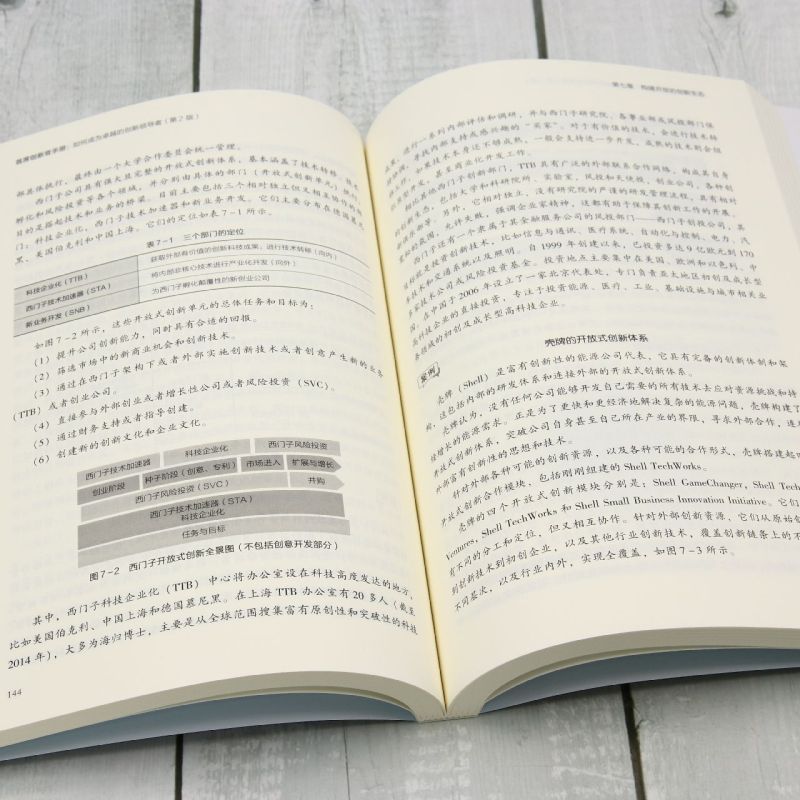 首席创新官手册：如何成为卓越的创新领导者（第2版）
部具体执行，最终由一个大学合作委员会统一管理。
西门子公司具有强大且完整的开放式创新体系，基本涵盖了技术转移、技术
孵化和风险投资等各个领域，并分别由具体的部门（开放式创新单元）执行，
目的是搭起技术和业务的桥梁。目前主要包括三个相对独立但又相互协作的部
门：科技企业化、西门子技术加速器和新业务开发。它们主要分布在德国慕尼
黑、美国伯克利和中国上海。它们的定位如表7-1所示。
表7-1 三个部门的定位
科技企业化（TTB） 获取外部有价值的创新科技成果，进行技术转移（向内）
西门子技术加速器（STA） 将内部非核心技术进行产业化开发（向外）
新业务开发（SNB） 为西门子孵化颠覆性的新创业公司
如图7-2所示，这些开放式创新单元的总体任务和目标为：
（1）提升公司创新能力，同时具有合适的回报。
（2）筛选市场中的新商业机会和创新技术。
（3）通过在西门子架构下或者外部实施创新技术或者创意产生新的业务
（TTB）或者创业公司。
（4）直接参与外部创业或者增长性公司或者风险投资（SVC）。
（5）通过财务支持或者指导创建。
（6）创建新的创新文化和企业文化。
西门子技术加速器 科技企业化 西门子风险投资
创业阶段 种子阶段（创意、专利） 市场进入 扩展与增长
西门子风险投资（SVC） 并购
西门子技术加速器（STA）
科技企业化
任务与目标
图7-2 西门子开放式创新全景图（不包括创意开发部分）
其中，西门子科技企业化（TTB）中心将办公室设在科技高度发达的地方，
比如美国伯克利、中国上海和德国慕尼黑。在上海TTB办公室有20多人（截至
2014年），大多为海归博士，主要是从全球范围搜集富有原创性和突破性的科技
144
第七章 构建开放的创新生态
成果，进行一系列内部评估和调研，并与西门子研究院、各事业部或风投部门保
持沟通，寻找内部支持或感兴趣的“买家”。对于有价值的技术，会进行技术转
移。如果技术本身还不够成熟，一般会支持进一步开发，成熟的技术则会组
织开发，甚至商业化开发工作。
相比其他西门子创新部门，TTB具有广泛的外部联系合作网络，构成其自身
创新生态，包括大学和科研院所、实验室、风投和天使投，创业公司，各种创
另外，它相对独立，没有研究院的严谨的研发管理流程，具有相对
的氛围，允许失败，强调企业家精神，这都有助于保障其创新工作的开展。
西门子还有一个隶属于其金融服务公司的风投部门——西门子创投公司，其
目标就是投资创新技术，比如信息与通讯、医疗系统、自动化与控制、电力、汽
车技术和交通系统以及照明。自1999年创建以来，已投资多达9亿欧元到170
多家技术公司或风险投资基金。投资地点主要集中在美国、欧洲和以色列、中
国。在中国于2006年设立了一家北京代表处，专门负责亚太地区初创及成长型
高科技企业的直接投资，专注于投资能源、医疗、工业、基础设施与城市相关业
务领域的初创及成长型高科技企业。
案例
壳牌的开放式创新体系
壳牌（Shell）是富有创新性的能源公司代表，它具有完备的创新体制和架
构，这包括内部的研发体系和连接外部的开放式创新体系。
壳牌认为，没有任何公司能够开发自己需要的所有技术去应对资源挑战和持
续增长的能源需求。正是为了更快和更经济地解决复杂的能源问题，壳牌构建了
开放式创新体系，突破公司自身甚至自己所在产业的界限，寻求外部合作，连
外部富有创新性的思想和技术。
针对外部各种可能的创新资源，以及各种可能的合作形式，壳牌搭建起
开放式创新合作模块，包括刚刚组建的Shell TechWorks。
壳牌的四个开放式创新模块分别是：Shell GameChanger, Shell Tech
Ventures, Shell TechWorks和Shell Small Business Innovation Initiative。它们
有不同的分工和定位，但又相互协作。针对外部创新资源，它们从原始创
到创新技术到初创企业，以及其他行业创新技术，覆盖创新链条上的不
不同层次，以及行业内外，实现全覆盖，如图7-3所示。